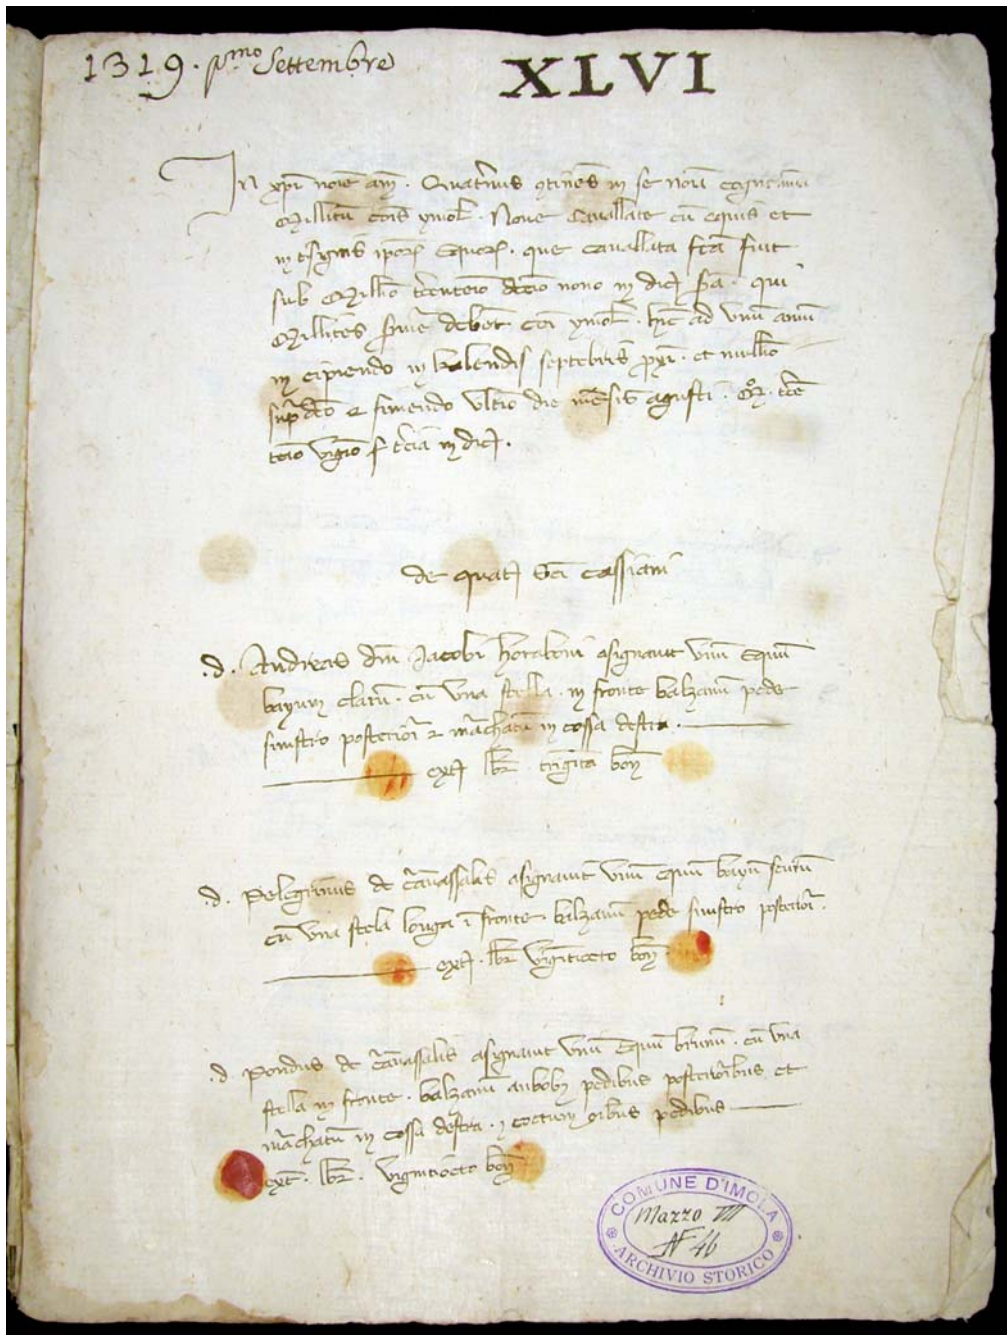 1319. pmo Settembre
XLVI
In xpi noie am. Quatnus gtines in se noia
Millitu cois ymol. Noue Cauallate cu equis et
insignis ipor equor. que cauallata fca fuit
sub Millo tcenteio decio nono indic. qui
Millites debet coi ymol. hic ad vnu annu
incipiendo in kalendis septebris pxi. et millo
sup dco et finiendo vltio die mesis agusti. M. tce
teio vigio tcia indic.
de quat sci cassiani
.d. Andreas dni Jacobi asignauit vnu equu
bayum claru. cu vna stella. in fronte balzanu pede
sinistro posteriori et machatu in cossa destra.
ext. lbr. triginta bon
.d. pelegrinus de asignauit vnu equu bayu scuru
cu vna stela longa i fronte balzanu pede sinistro posterior.
ext. lbr vigintiocto bon
.d. de asignauit vnu equu brunu. cu vna
stella in fronte. balzanu anbobus pedibus posterioribus et
machatu in cossa destra. oibus pedibus
ext. lbr. vigintiocto bon
COMUNE D'IMOLA
Mazzo VII
N 46
ARCHIVIO STORICO